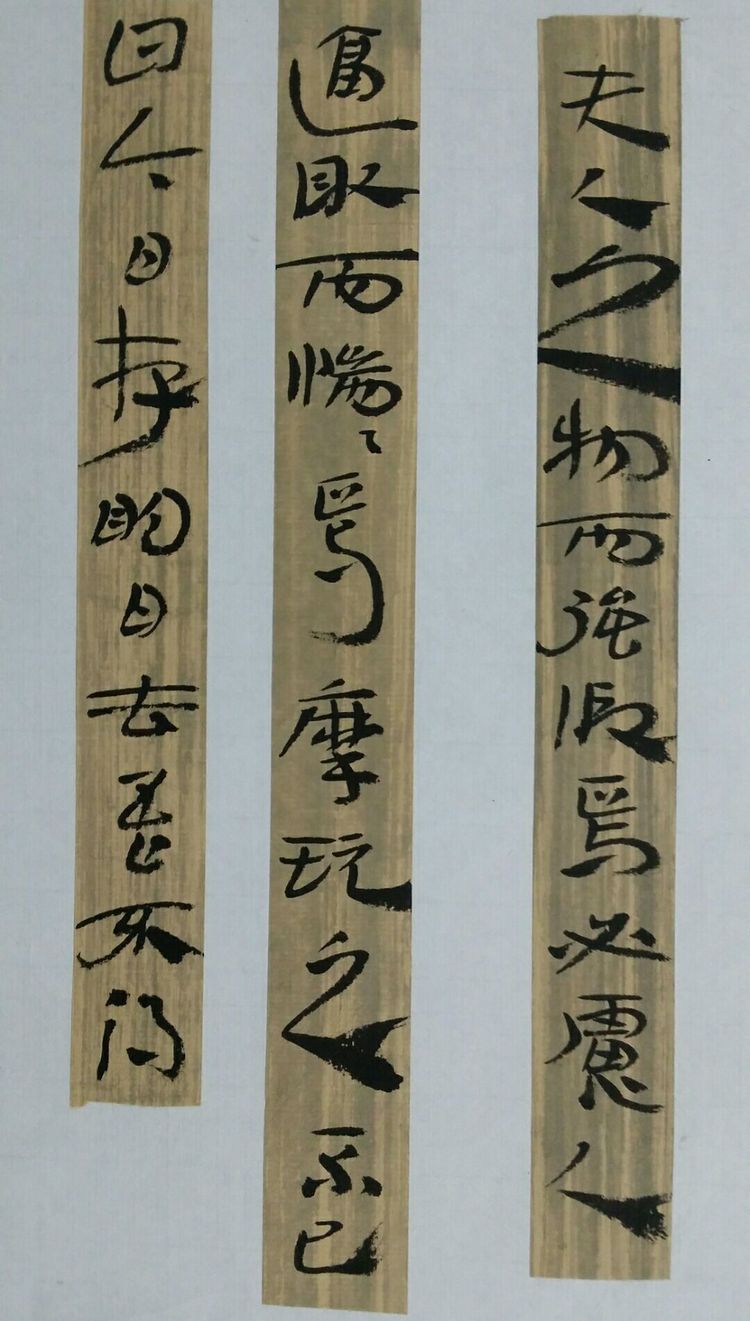 夫人之物而强假焉必慮人
逼取而惴々焉摩玩之不已
曰今日存明日去吾不得